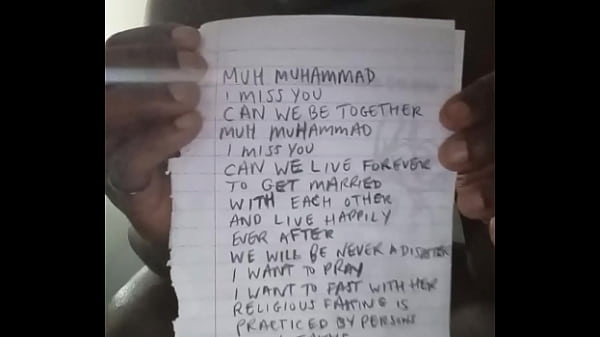 MUH MUHAMMAD
I MISS YOU
CAN WE BE TOGETHER
MUH MUHAMMAD
I MISS YOU
CAN WE LIVE FOREVER
TO GET MARRIED
WITH EACH OTHER
AND LIVE HAPPILY
EVER AFTER
WE WILL BE NEVER A DISASTER
I WANT TO PRAY
I WANT TO FAST WITH HER
RELIGIOUS FASTING IS
PRACTICED BY PERSONS